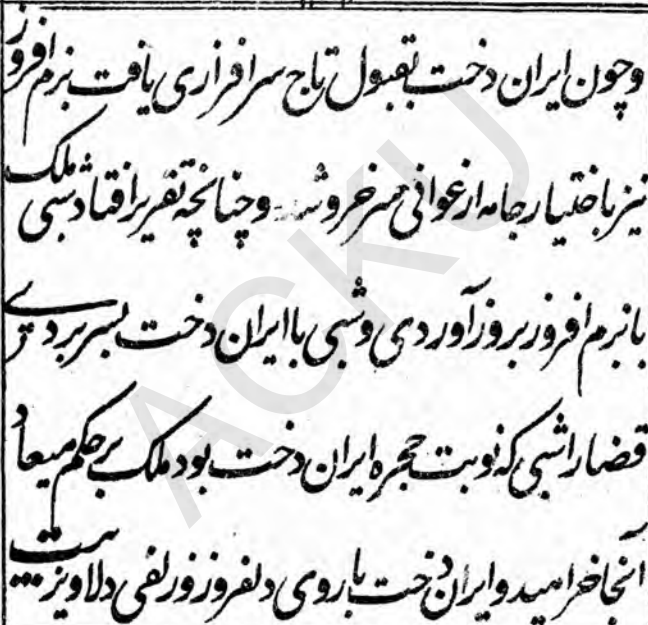 وچون ایران دخت بقبول تاج سرافرازی یافت بزم افروز
نیز باختیار جامه ارغوانی سرخرو شد وچنانچه تقریر افتاد شبی ملک
با بزم افروز بروز آوردی وشبی با ایران دخت بسر بردی
قضا را شبی که نوبت حجره ایران دخت بود ملک بر حکم میعاد
آنجا خرامید و ایران دخت با روی دلفروز وزلفی دلاویز بیت
ACKU